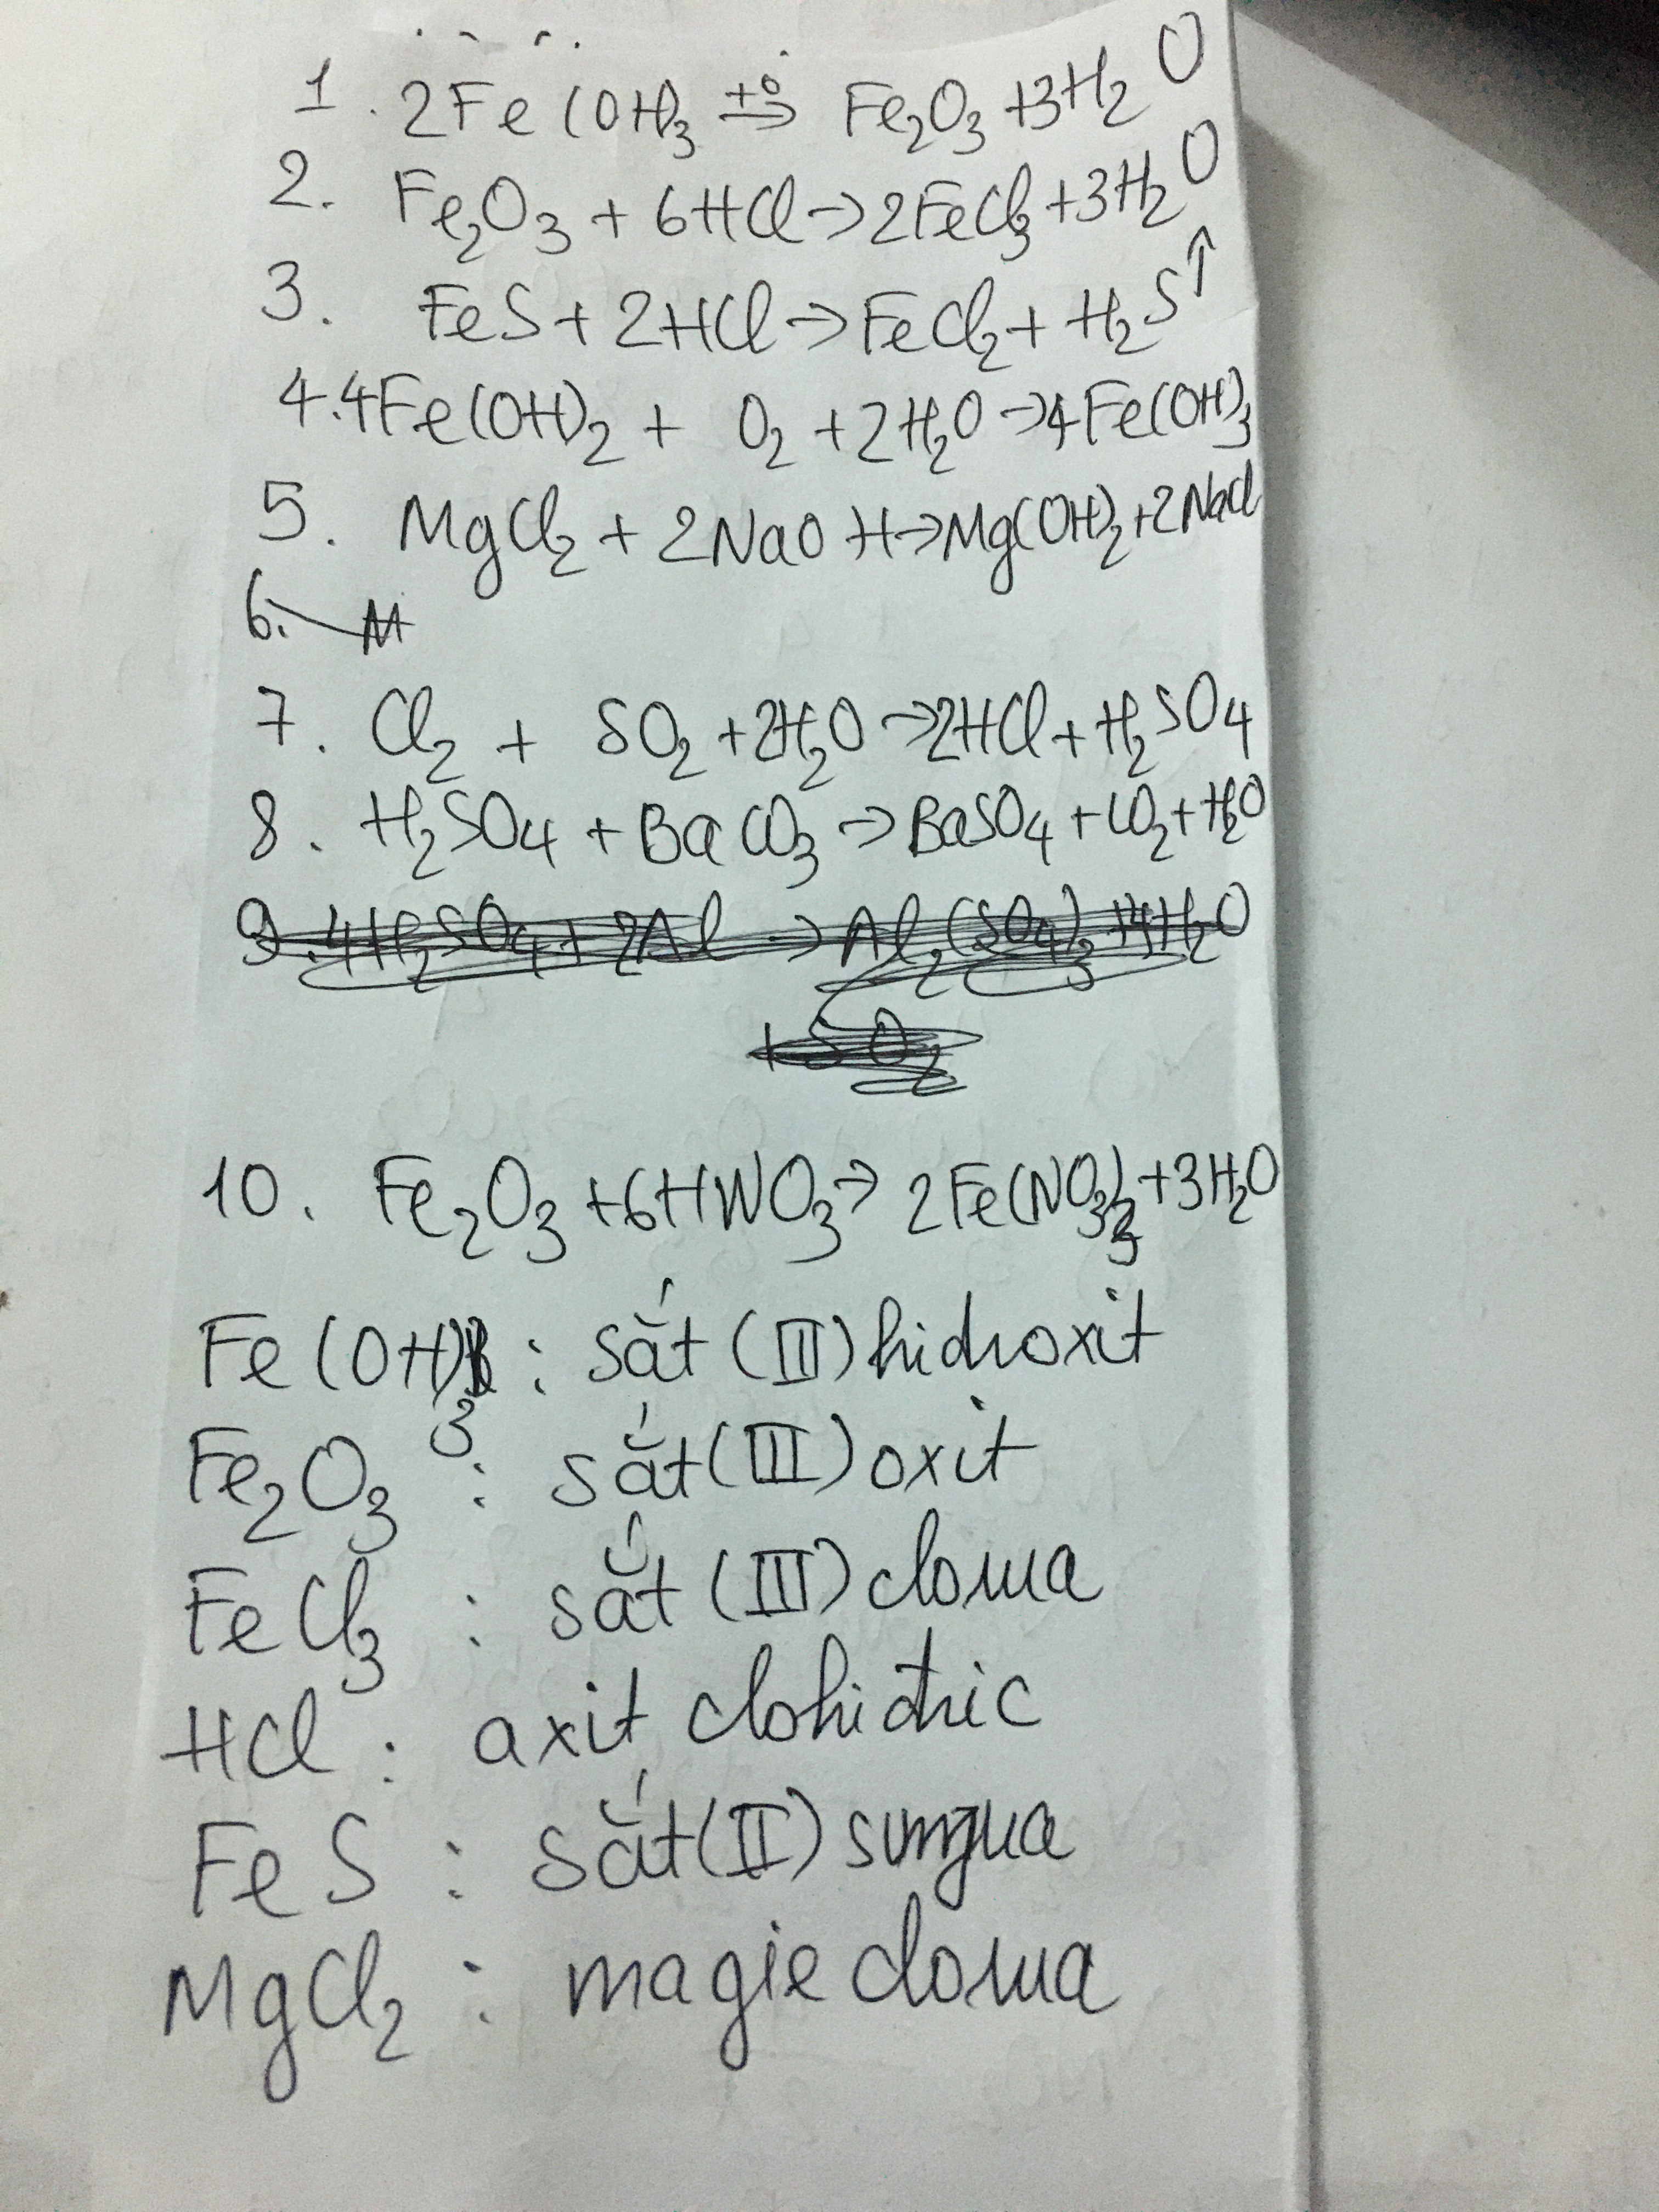 1. 2Fe(OH)₃ →(t°) Fe₂O₃ + 3H₂O
2. Fe₂O₃ + 6HCl → 2FeCl₃ + 3H₂O
3. FeS + 2HCl → FeCl₂ + H₂S↑
4. 4Fe(OH)₂ + O₂ + 2H₂O → 4Fe(OH)₃
5. MgCl₂ + 2NaOH → Mg(OH)₂ + 2NaCl
6. M
7. Cl₂ + SO₂ + 2H₂O → 2HCl + H₂SO₄
8. H₂SO₄ + BaCO₃ → BaSO₄ + CO₂ + H₂O
9. 4H₂SO₄ + 2Al → Al₂(SO₄)₃ + 4H₂O
+ SO₂
10. Fe₂O₃ + 6HNO₃ → 2Fe(NO₃)₃ + 3H₂O
Fe(OH)₃ : sắt (III) hidroxit
Fe₂O₃ : sắt (III) oxit
FeCl₃ : sắt (III) clorua
HCl : axit clohiđric
FeS : sắt (II) sunfua
MgCl₂ : magie clorua